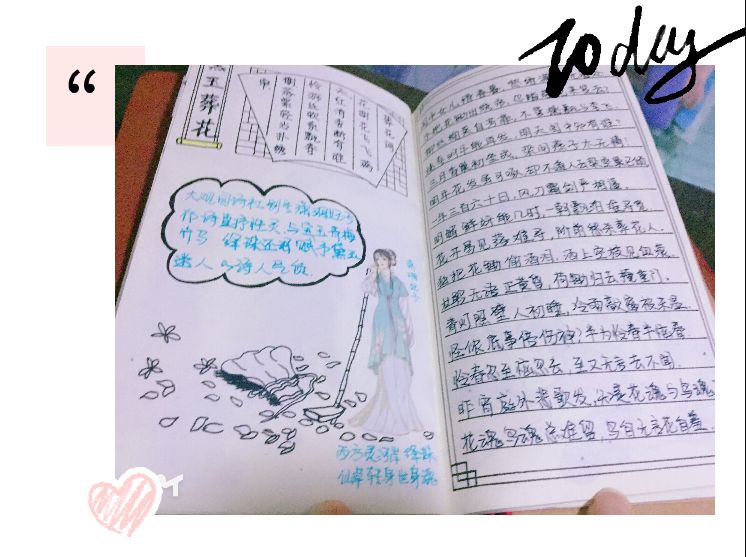 Today
“
玉葬花
葬花词
花谢花飞飞满
天红消香断有谁
怜游丝软系飘春
榭落絮轻沾扑绣
帘
大观园诗社别号潇湘妃子
作诗直抒性灵 与宝玉青梅
竹马 绛珠还泪赋予黛玉
迷人的诗人气质
潇湘妃子
西方灵河岸 绛珠
仙草
女儿惜春暮,
手把花锄出绣帘,
柳丝榆荚自芳菲,不管桃飘与李飞,
桃李明年能再发,明天闺中知有谁?
三月香巢初垒成,梁间燕子太无情!
明年花发虽可啄,却不道人去梁空巢已倾
一年三百六十日,风刀霜剑严相逼,
明媚鲜妍能几时,一朝飘泊难寻觅。
花开易见落难寻,阶前愁杀葬花人,
独把花锄偷洒泪,洒上空枝见血痕。
杜鹃无语正黄昏,荷锄归去掩重门,
青灯照壁人初睡,冷雨敲窗被未温。
怪侬底事倍伤神?半为怜春半恼春
怜春忽至恼忽去,至又无言去不闻。
昨宵庭外悲歌发,知是花魂与鸟魂?
花魂鸟魂总难留,鸟自无言花自羞。